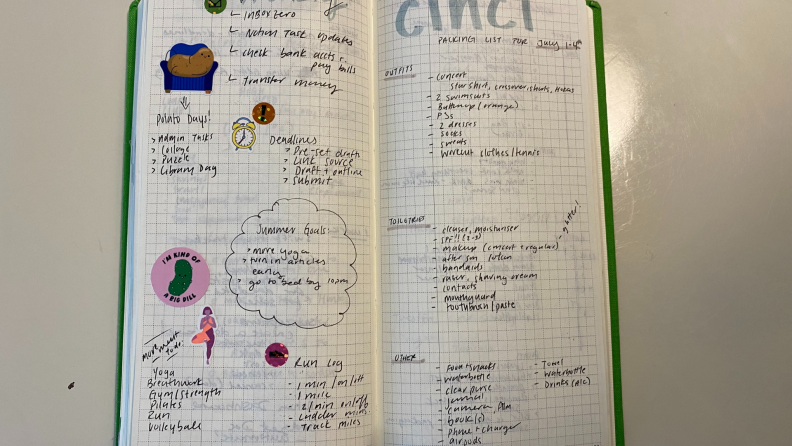 └ INBOX ZERO
└ Notion Task updates
└ check bank accts +
pay bills
└ Transfer money
Potato Days!
> Admin Tasks
> Collage
> Puzzle
> Library Day
Deadlines
> Pre-set draft
> Link source
> Draft + outline
> Submit
Summer Goals:
> more yoga
> turn in articles
early
> go to bed by 10pm
I'M KIND OF
A BIG DILL
more
Yoga
Breathwork
Gym/Strength
Pilates
Run
Volleyball
Run Log
- 1 min /on/off
- 1 mile
- 2/min on/off
- Ladder mins
- Track miles
cinci
PACKING LIST FOR July 1-4th
OUTFITS
- Concert
Star shirt, crossover shorts,
- 2 swimsuits
- Buttonup (orange)
- PJs
- 2 dresses
- socks
- sweats
- workout clothes/tennis
TOILETRIES
- clenser, moisturiser
- SPF!!
- makeup (concert + regular)
- glitter!
- after sun lotion
- bandaids
- razor, shaving cream
- contacts
- mouthguard
- toothbrush/paste
OTHER
- food + snacks
- waterbottle
- clear purse
- journal
- camera, film
- book(s)
- phone + charger
- airpods
- Towel
- waterbottle
- Drinks (alc)